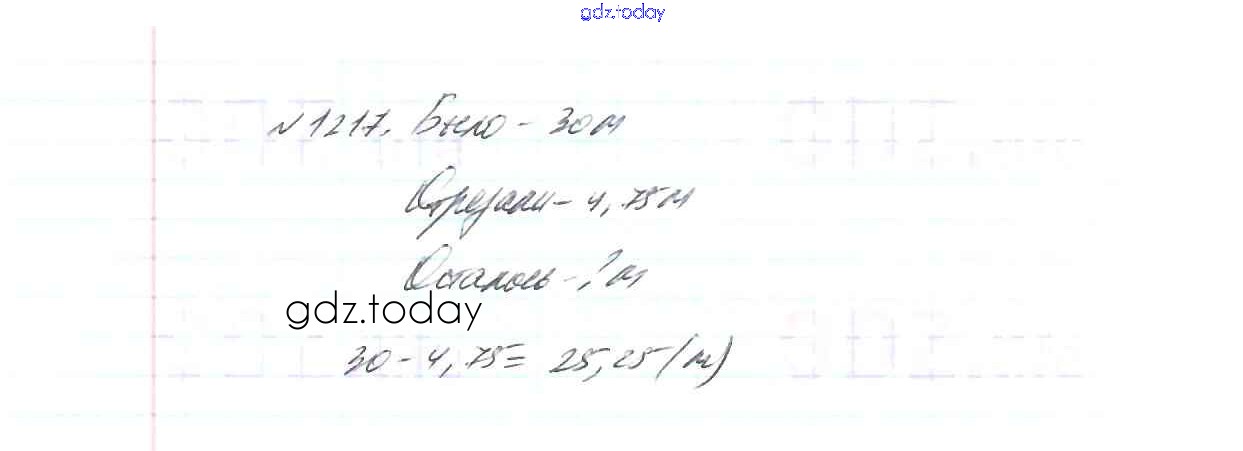 gdz.today
№1217. Было - 30м
Отрезали - 4,75м
Осталось - ? м
gdz.today
30 - 4,75 = 25,25 (м)